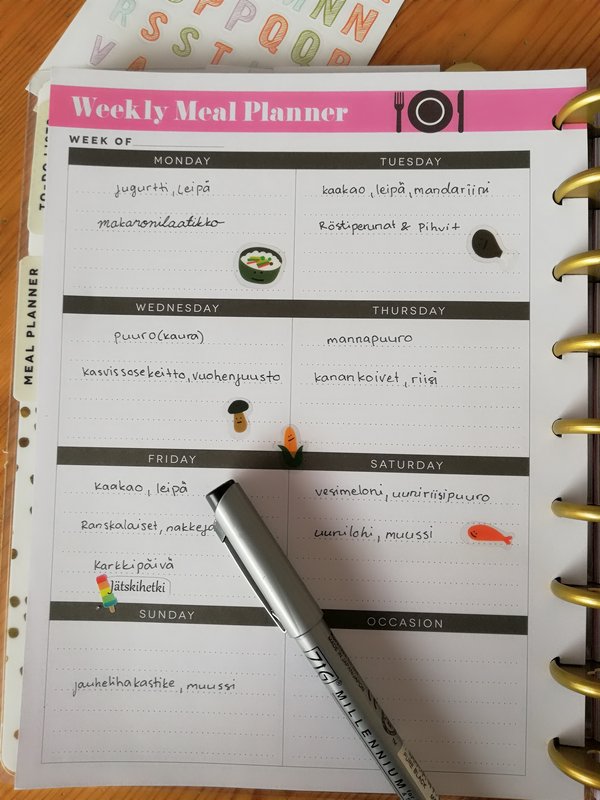 R S T P Q Q R
Weekly Meal Planner
WEEK OF
TO-DO LISTS
MEAL PLANNER
MONDAY
jugurtti, leipä
makaronilaatikko
TUESDAY
kaakao, leipä, mandariini
Röstiperunat & Pihvit
WEDNESDAY
puuro (kaura)
kasvissosekeitto, vuohenjuusto
THURSDAY
mannapuuro
kanankoivet, riisi
FRIDAY
kaakao, leipä
Ranskalaiset, nakkeja
Karkkipäivä
Jätskihetki
SATURDAY
vesimeloni, uuniriisipuuro
uunilohi, muussi
SUNDAY
jauhelihakastike, muussi
OCCASION
ZIG MILLENNIUM
PURE BLACK